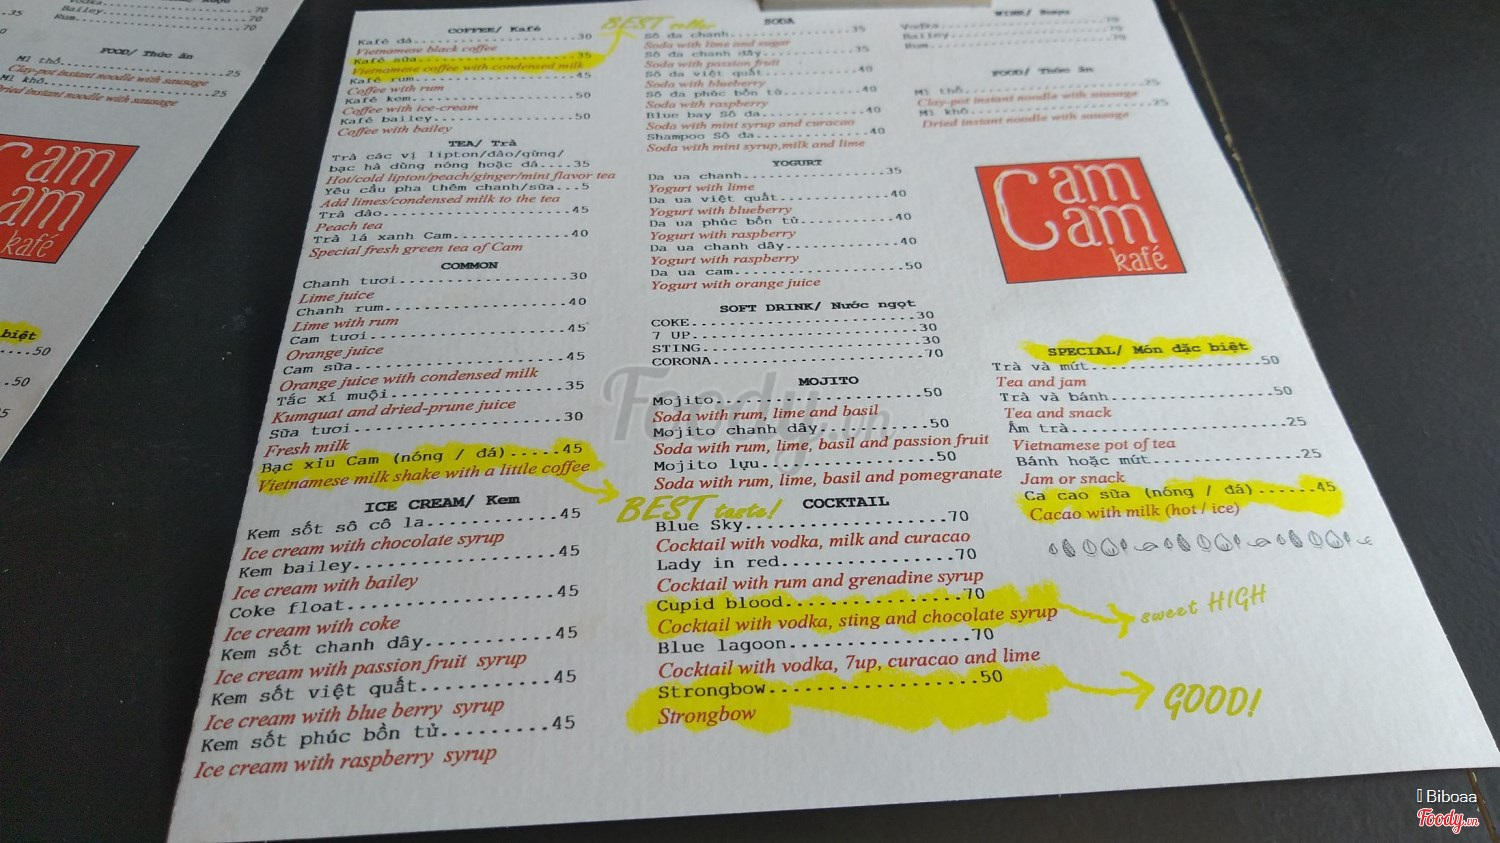 COFFEE/ Kafé
Kafé đá.....................30
Vietnamese black coffee
Kafé sữa....................35
Vietnamese coffee with condensed milk
Kafé rum....................45
Coffee with rum
Kafé kem....................50
Coffee with ice-cream
Kafé bailey.................50
Coffee with bailey
BEST seller
TEA/ Trà
Trà các vị lipton/đào/gừng/
bạc hà dùng nóng hoặc đá....35
Hot/cold lipton/peach/ginger/mint flavor tea
Yêu cầu pha thêm chanh/sữa...5
Add limes/condensed milk to the tea
Trà đào.....................45
Peach tea
Trà lá xanh Cam.............40
Special fresh green tea of Cam
COMMON
Chanh tươi..................30
Lime juice
Chanh rum...................40
Lime with rum
Cam tươi....................45
Orange juice
Cam sữa.....................45
Orange juice with condensed milk
Tắc xí muội.................35
Kumquat and dried-prune juice
Sữa tươi....................30
Fresh milk
Bạc xỉu Cam (nóng / đá).....45
Vietnamese milk shake with a little coffee
BEST taste!
ICE CREAM/ Kem
Kem sốt sô cô la............45
Ice cream with chocolate syrup
Kem bailey..................45
Ice cream with bailey
Coke float..................45
Ice cream with coke
Kem sốt chanh dây...........45
Ice cream with passion fruit syrup
Kem sốt việt quất...........45
Ice cream with blue berry syrup
Kem sốt phúc bồn tử.........45
Ice cream with raspberry syrup
SODA
Sô đa chanh.................35
Soda with lime and sugar
Sô đa chanh dây.............35
Soda with passion fruit
Sô đa việt quất.............40
Soda with blueberry
Sô đa phúc bồn tử...........40
Soda with raspberry
Blue bay Sô đa..............40
Soda with mint syrup and curacao
Shampoo Sô đa...............40
Soda with mint syrup,milk and lime
YOGURT
Da ua chanh.................35
Yogurt with lime
Da ua việt quất.............40
Yogurt with blueberry
Da ua phúc bồn tử...........40
Yogurt with raspberry
Da ua chanh dây.............40
Yogurt with raspberry
Da ua cam...................50
Yogurt with orange juice
SOFT DRINK/ Nước ngọt
COKE........................30
7 UP........................30
STING.......................30
CORONA......................70
MOJITO
Mojito......................50
Soda with rum, lime and basil
Mojito chanh dây............50
Soda with rum, lime, basil and passion fruit
Mojito lựu..................50
Soda with rum, lime, basil and pomegranate
COCKTAIL
Blue Sky....................70
Cocktail with vodka, milk and curacao
Lady in red.................70
Cocktail with rum and grenadine syrup
Cupid blood.................70
Cocktail with vodka, sting and chocolate syrup
sweet HIGH
Blue lagoon.................70
Cocktail with vodka, 7up, curacao and lime
Strongbow...................50
Strongbow
GOOD!
WINE/ Rượu
Vodka.......................70
Bailey......................70
Rum.........................70
FOOD/ Thức ăn
Mì thố......................25
Clay-pot instant noodle with sausage
Mì khô......................25
Dried instant noodle with sausage
Cam
Cam
kafé
SPECIAL/ Món đặc biệt
Trà và mứt..................50
Tea and jam
Trà và bánh.................50
Tea and snack
Ấm trà......................25
Vietnamese pot of tea
Bánh hoặc mứt...............25
Jam or snack
Ca cao sữa (nóng / đá)......45
Cacao with milk (hot / ice)
Bailey...70
Rum...70
FOOD/ Thức ăn
Mì thố...25
Clay-pot instant noodle with sausage
Mì khô...25
Dried instant noodle with sausage
Cam
am
kafé
biệt
50
50
Foody.vn
Biboaa
Foody.vn